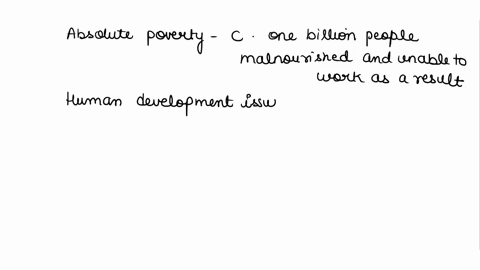 Absolute poverty - C. one billion people
malnourished and unable to
work as a result
Human development issu